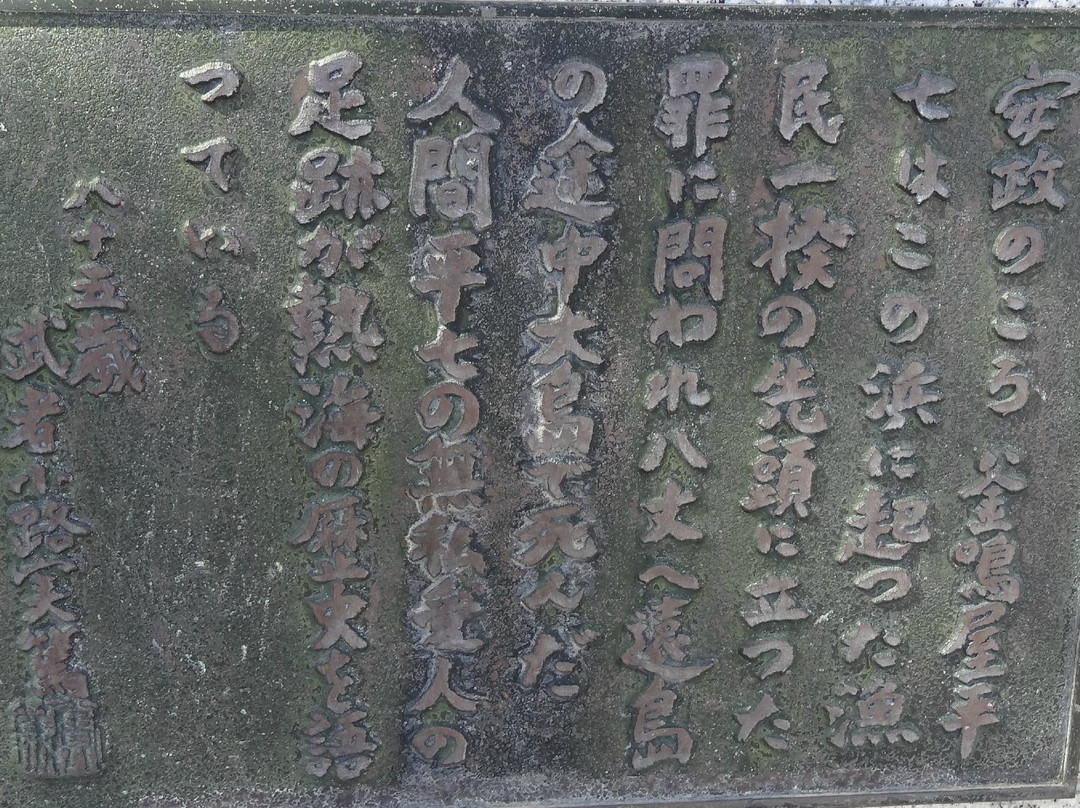 安政のころ 釜鳴屋平
七はこの浜に起つた漁
民一揆の先頭に立つた
罪に問われ八丈へ遠島
の途中大島で死んだ
人間平七の無私愛人の
足跡が熱海の歴史を語
つている
八十五歳
武者小路実篤